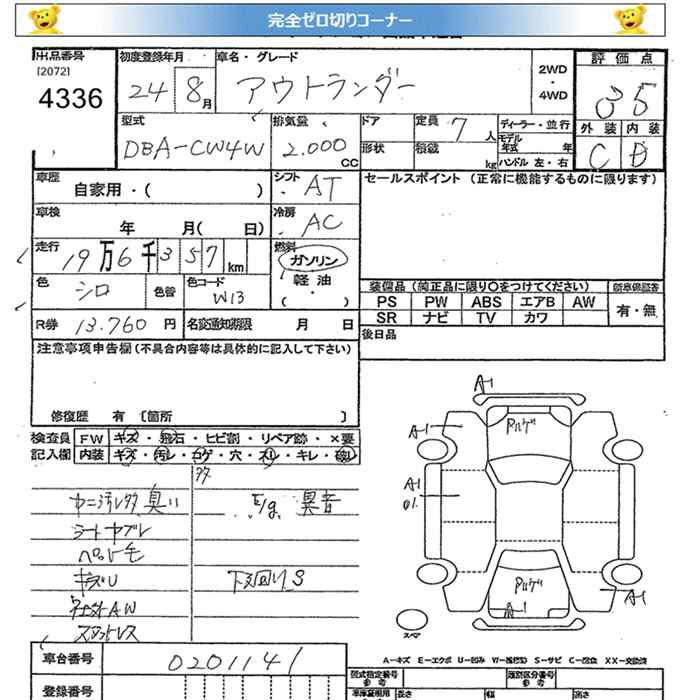 完全ゼロ切りコーナー
出品番号 初度登録年月 車名・グレード 2WD・4WD 評価点
[2072]
4336 24 8月 アウトランダー 35
型式 排気量 ドア 定員 7人 ディーラー・並行 外装 内装
DBA-CW4W 2.000cc 形状 積載 kg モデル年式 年 C D
ハンドル 左・右
車歴 自家用・( ) シフト AT セールスポイント (正常に機能するものに限ります)
車検 年 月( 日) 冷房 AC
走行 19万6千357km 燃料 ガソリン
色 シロ 色替 色コード W13 軽油・( )
装備品(純正品に限り○をつけてください) 新車保証書
PS PW ABS エアB AW 有・無
SR ナビ TV カワ
R券 13.760円 名変通知期限 月 日 後日品
注意事項申告欄(不具合内容等は具体的に記入して下さい)
修復歴 有 [箇所 ]
検査員 FW キズ・飛石・ヒビ割・リペア跡・×要
記入欄 内装 キズ・汚レ・コゲ・穴・スレ・キレ・破レ
臭い E/g 異音
シートヤブレ
ペット毛
キズU 下回りS
社外AW
A-1
A-1
A-1
A-1
A-1
スペア
車台番号 0201141
A-キズ E-エクボ U-凹み W-補修跡 S-サビ C-腐食 XX-交換済
登録番号
型式指定番号 参考 類別区分番号 参考
長さ 幅 高さ